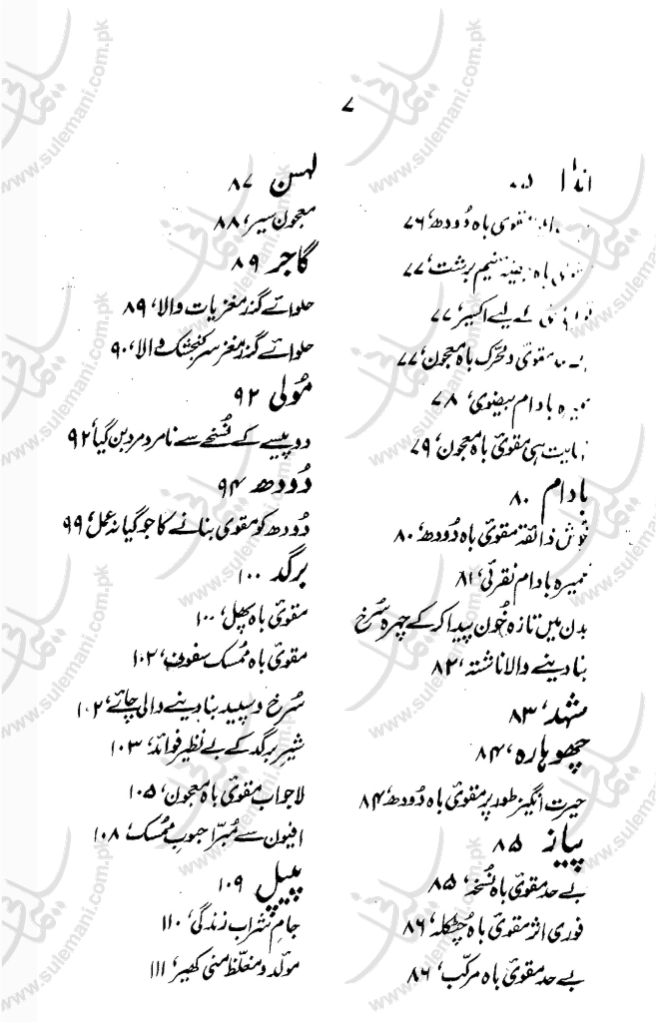 ۷
انڈا
مقوی باہ دودھ، ۷۶
باہ بیضہ نیم برشت، ۷۷
کے لیے اکسیر، ۷۷
مقوی و محرک باہ معجون، ۷۷
بادام بیضوی، ۷۸
نہایت ہی مقوی باہ معجون، ۷۹
بادام ۸۰
خوش ذائقہ مقوئ باہ دُودھ، ۸۰
خمیرہ بادام نقرئی، ۸۱
بدن میں تازہ خُون پیدا کر کے چہرہ سُرخ
بنا دینے والا ناشتہ، ۸۲
شہد، ۸۳
چھوہارہ، ۸۴
حیرت انگیز طور پر مقوئ باہ دُودھ، ۸۴
پیاز ۸۵
بے حد مقوئ باہ نُسخہ، ۸۵
فوری اثر مقوئ باہ چٹکلہ، ۸۶
بے حد مقوئ باہ مرکّب، ۸۶
لہسن ۸۷
معجون سیر، ۸۸
گاجر ۸۹
حلوائے گذر مغزیات والا، ۸۹
حلوائے گذر مغز سر کنجشک والا، ۹۰
مُولی ۹۲
دو پیسے کے نُسخے سے نامرد مرد بن گیا، ۹۲
دُودھ ۹۴
دُودھ کو مقوی بنانے کا جوگیانہ عمل، ۹۹
برگد ۱۰۰
مقوئ باہ پھل، ۱۰۰
مقوئ باہ مُمسک سفوف، ۱۰۲
سُرخ و سپید بنا دینے والی چائے، ۱۰۲
شیرِ برگد کے بے نظیر فوائد، ۱۰۳
لاجواب مقوئ باہ معجون، ۱۰۵
افیون سے مُبرّا حبوبِ مُمسک، ۱۰۸
پیپل ۱۰۹
جامِ شراب زندگی، ۱۱۰
مولّد و مغلّظ منی کھیر، ۱۱۱
www.sulemani.com.pk